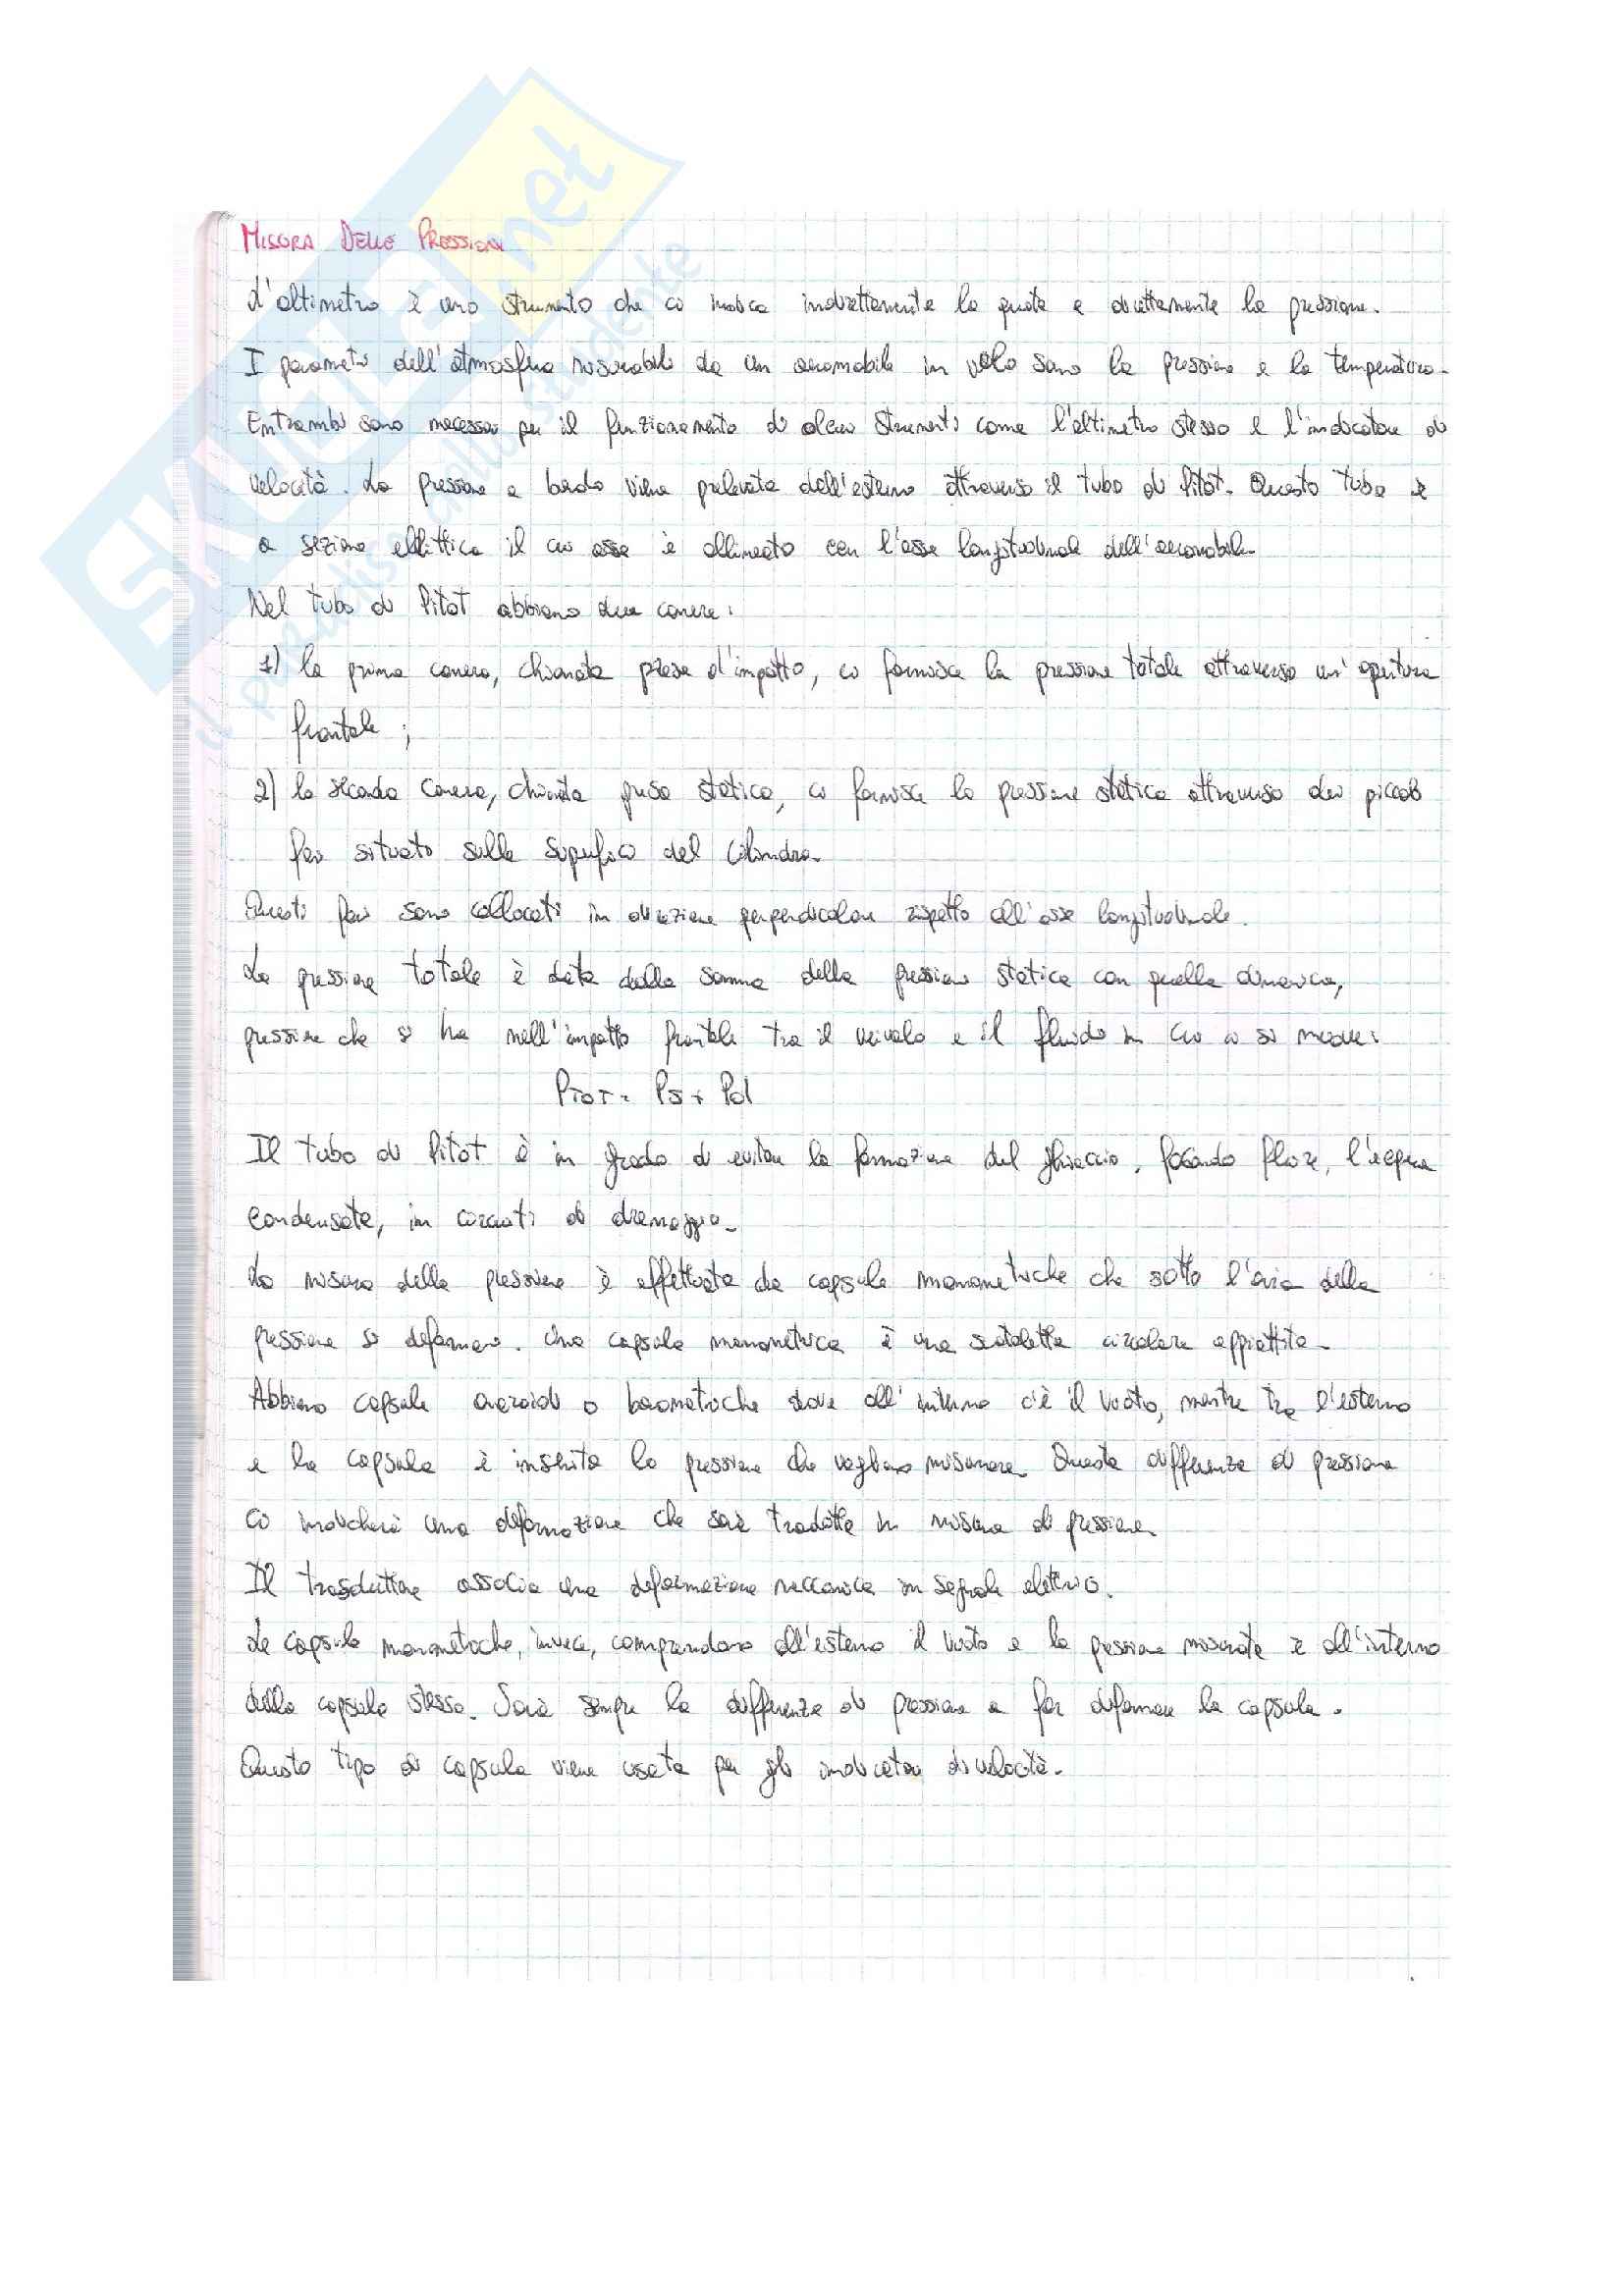 MISURA DELLE PRESSIONI
L'altimetro è uno strumento che ci indica indirettamente la quota e direttamente la pressione.
I parametri dell'atmosfera misurabili da un aeromobile in volo sono la pressione e la temperatura.
Entrambi sono necessari per il funzionamento di alcuni strumenti come l'altimetro stesso e l'indicatore di
velocità. La pressione a bordo viene prelevata dall'esterno attraverso il tubo di Pitot. Questo tubo è
a sezione ellittica il cui asse è allineato con l'asse longitudinale dell'aeromobile.
Nel tubo di Pitot abbiamo due camere:
1) la prima camera, chiamata presa d'impatto, ci fornisce la pressione totale attraverso un'apertura
frontale;
2) la seconda camera, chiamata presa statica, ci fornisce la pressione statica attraverso dei piccoli
fori situato sulla superficie del cilindro.
Questi fori sono collocati in direzione perpendicolare rispetto all'asse longitudinale.
La pressione totale è data dalla somma della pressione statica con quella dinamica,
pressione che si ha nell'impatto frontale tra il veivolo e il fluido in cui ci si muove:
PTOT = Ps + Pd
Il tubo di Pitot è in grado di evitare la formazione del ghiaccio, facendo fluire, l'acqua
condensata, in circuiti di drenaggio.
La misura della pressione è effettuata da capsule manometriche che sotto l'aria della
pressione si deformano. Una capsula manometrica è una scatoletta circolare appiattita.
Abbiamo capsule aneroidi o barometriche dove all'interno c'è il vuoto, mentre tra l'esterno
e la capsula è inserita la pressione che vogliamo misurare. Questa differenza di pressione
ci indicherà una deformazione che sarà tradotta in misura di pressione.
Il trasduttore associa una deformazione meccanica in segnale elettrico.
Le capsule manometriche, invece, comprendono all'esterno il vuoto e la pressione misurata è all'interno
della capsula stessa. Sarà sempre la differenza di pressione a far deformare la capsula.
Questo tipo di capsula viene usata per gli indicatori di velocità.
SKUOLA.net
il paradiso dello studente